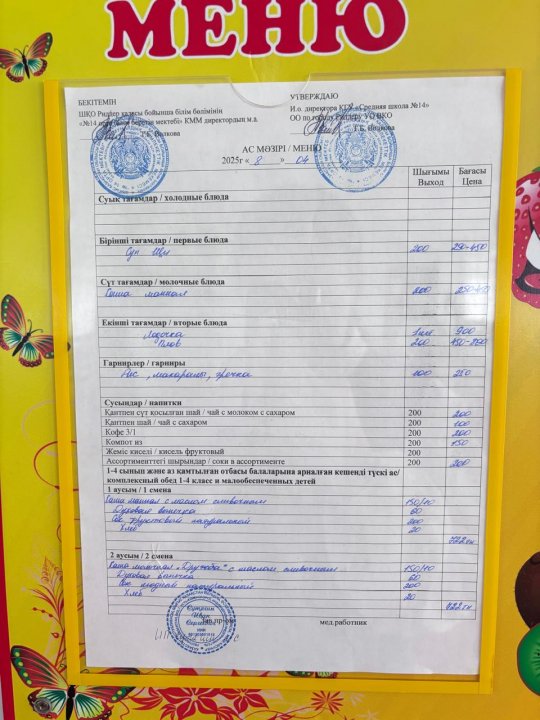 МЕНЮ
БЕКІТЕМІН
ШКО Риддер қаласы бойынша білім бөлімінің
«№14 беретін мектебі» КММ директордың м.а.
Т.Б. Волкова
УТВЕРЖДАЮ
И.о. директора КГУ «Средняя школа №14»
ОО по городу Риддеру УО ВКО
Т.Б. Волкова
АС МӘЗІРІ / МЕНЮ
2025г « 8 » 04
Шығымы Выход
Бағасы Цена
Суық тағамдар / холодные блюда
Бірінші тағамдар / первые блюда
Суп 200 250-450
Сүт тағамдар / молочные блюда
Каша 200
Екінші тағамдар / вторые блюда
900
Плов 200
Гарнирлер / гарниры
Рис, макароны, гречка 100 250
Сусындар / напитки
Қантпен сүт қосылған шай / чай с молоком с сахаром 200 200
Қантпен шай / чай с сахаром 200 100
Кофе 3/1 200 200
Компот из 200 150
Жеміс киселі / кисель фруктовый 200
Ассортименттегі шырындар / соки в ассортименте 200 200
1-4 сынып және аз қамтылған отбасы балаларына арналған кешенді түскі ас/
комплексный обед 1-4 класс и малообеспеченных детей
1 ауысым / 1 смена
Каша с маслом сливочным 150/10
60
Сок фруктовый натуральный 200
Хлеб 20
2 ауысым / 2 смена
Каша молочная "Дружба" с маслом сливочным 150/10
60
Сок натуральный 200
Хлеб 20
мед.работник